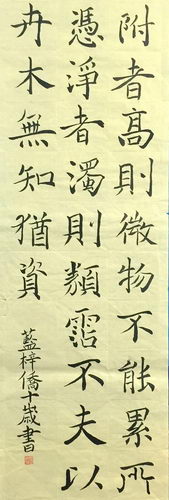 附者高則微物不能累所
憑淨者濁則類霑不夫以
卉木無知猶資
藍梓僑十歲書